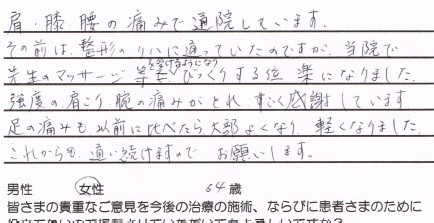 肩・膝・腰の痛みで通院しています。
その前は、整形のリハに通っていたのですが、当院で
を受けるようになり
先生のマッサージ等 びっくりする位 楽になりました。
強度の肩こり、腕の痛みがとれ、すごく感謝しています
足の痛みも以前に比べたら大部よくなり、軽くなりました。
これからも、通い続けますので お願いします。
男性 女性 64歳
皆さまの貴重なご意見を今後の治療の施術、ならびに患者さまのために